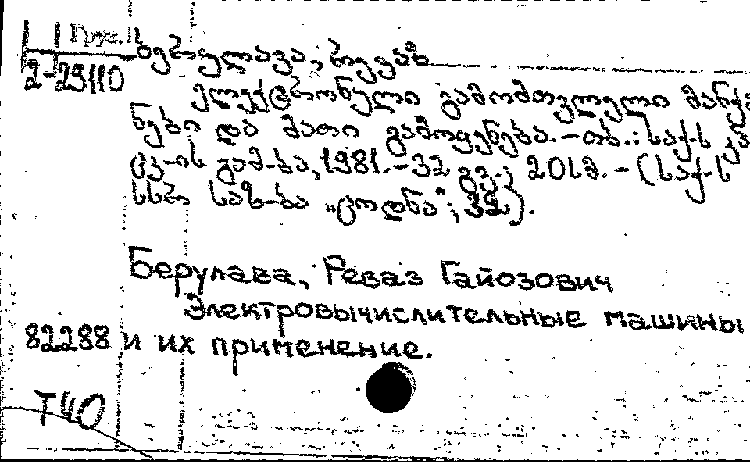 Груз.
ბერულავა, რევაზ
2-29110
ელექტრონული გამომთვლელი მანქა-
ნები და მათი გამოყენება. - თბ.: საქ. სს კპ
ცკ-ის გამ-ბა, 1981. - 32 გვ.; 20 სმ. - (საქ. სს
სსრ საზ-ბა „ცოდნა"; 32).
Берулава, Реваз Гайозович
Электровычислительные машины
82288 и их применение.
Т40